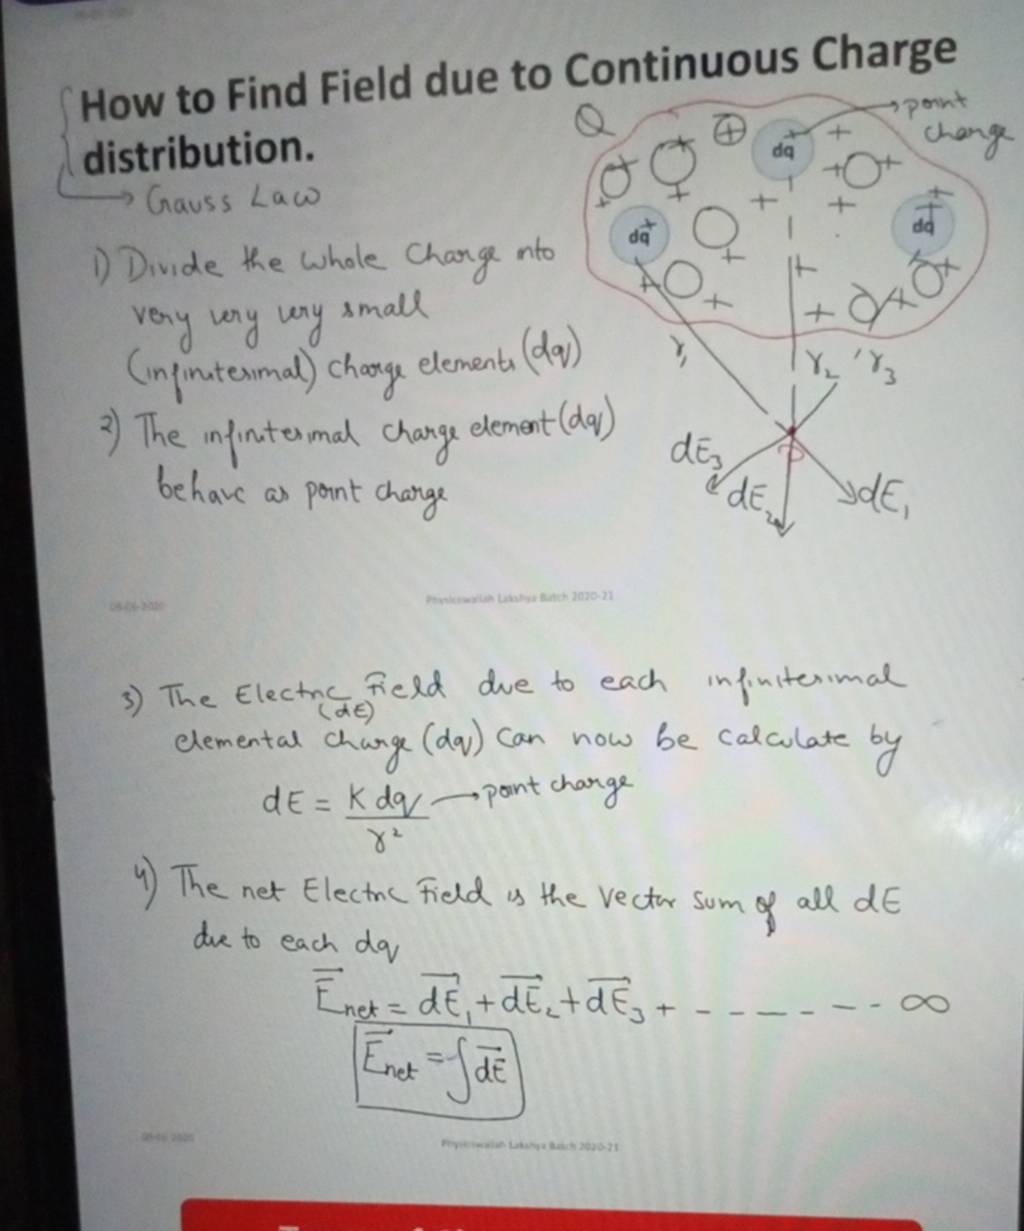 How to Find Field due to Continuous Charge
distribution.
→ Gauss Law
Q
point
charge
dq
dq
dq
1) Divide the whole Charge into
very very very small
(infinitesimal) charge elements (dq)
2) The infinitesimal charge element (dq)
behave as point charge
r₁
r₂
r₃
P
dE₃
dE₂
dE₁
08-06-2020
Physicswallah Lakshya Batch 2020-21
3) The Electric Field due to each infinitesimal
(dE)
elemental charge (dq) can now be calculate by
dE = K dq → point charge
r²
4) The net Electric Field is the vector sum of all dE
due to each dq
E⃗net = dE⃗₁ + dE⃗₂ + dE⃗₃ + - - - - - - - ∞
E⃗net = ∫dE⃗
08-06-2020
Physicswallah Lakshya Batch 2020-21